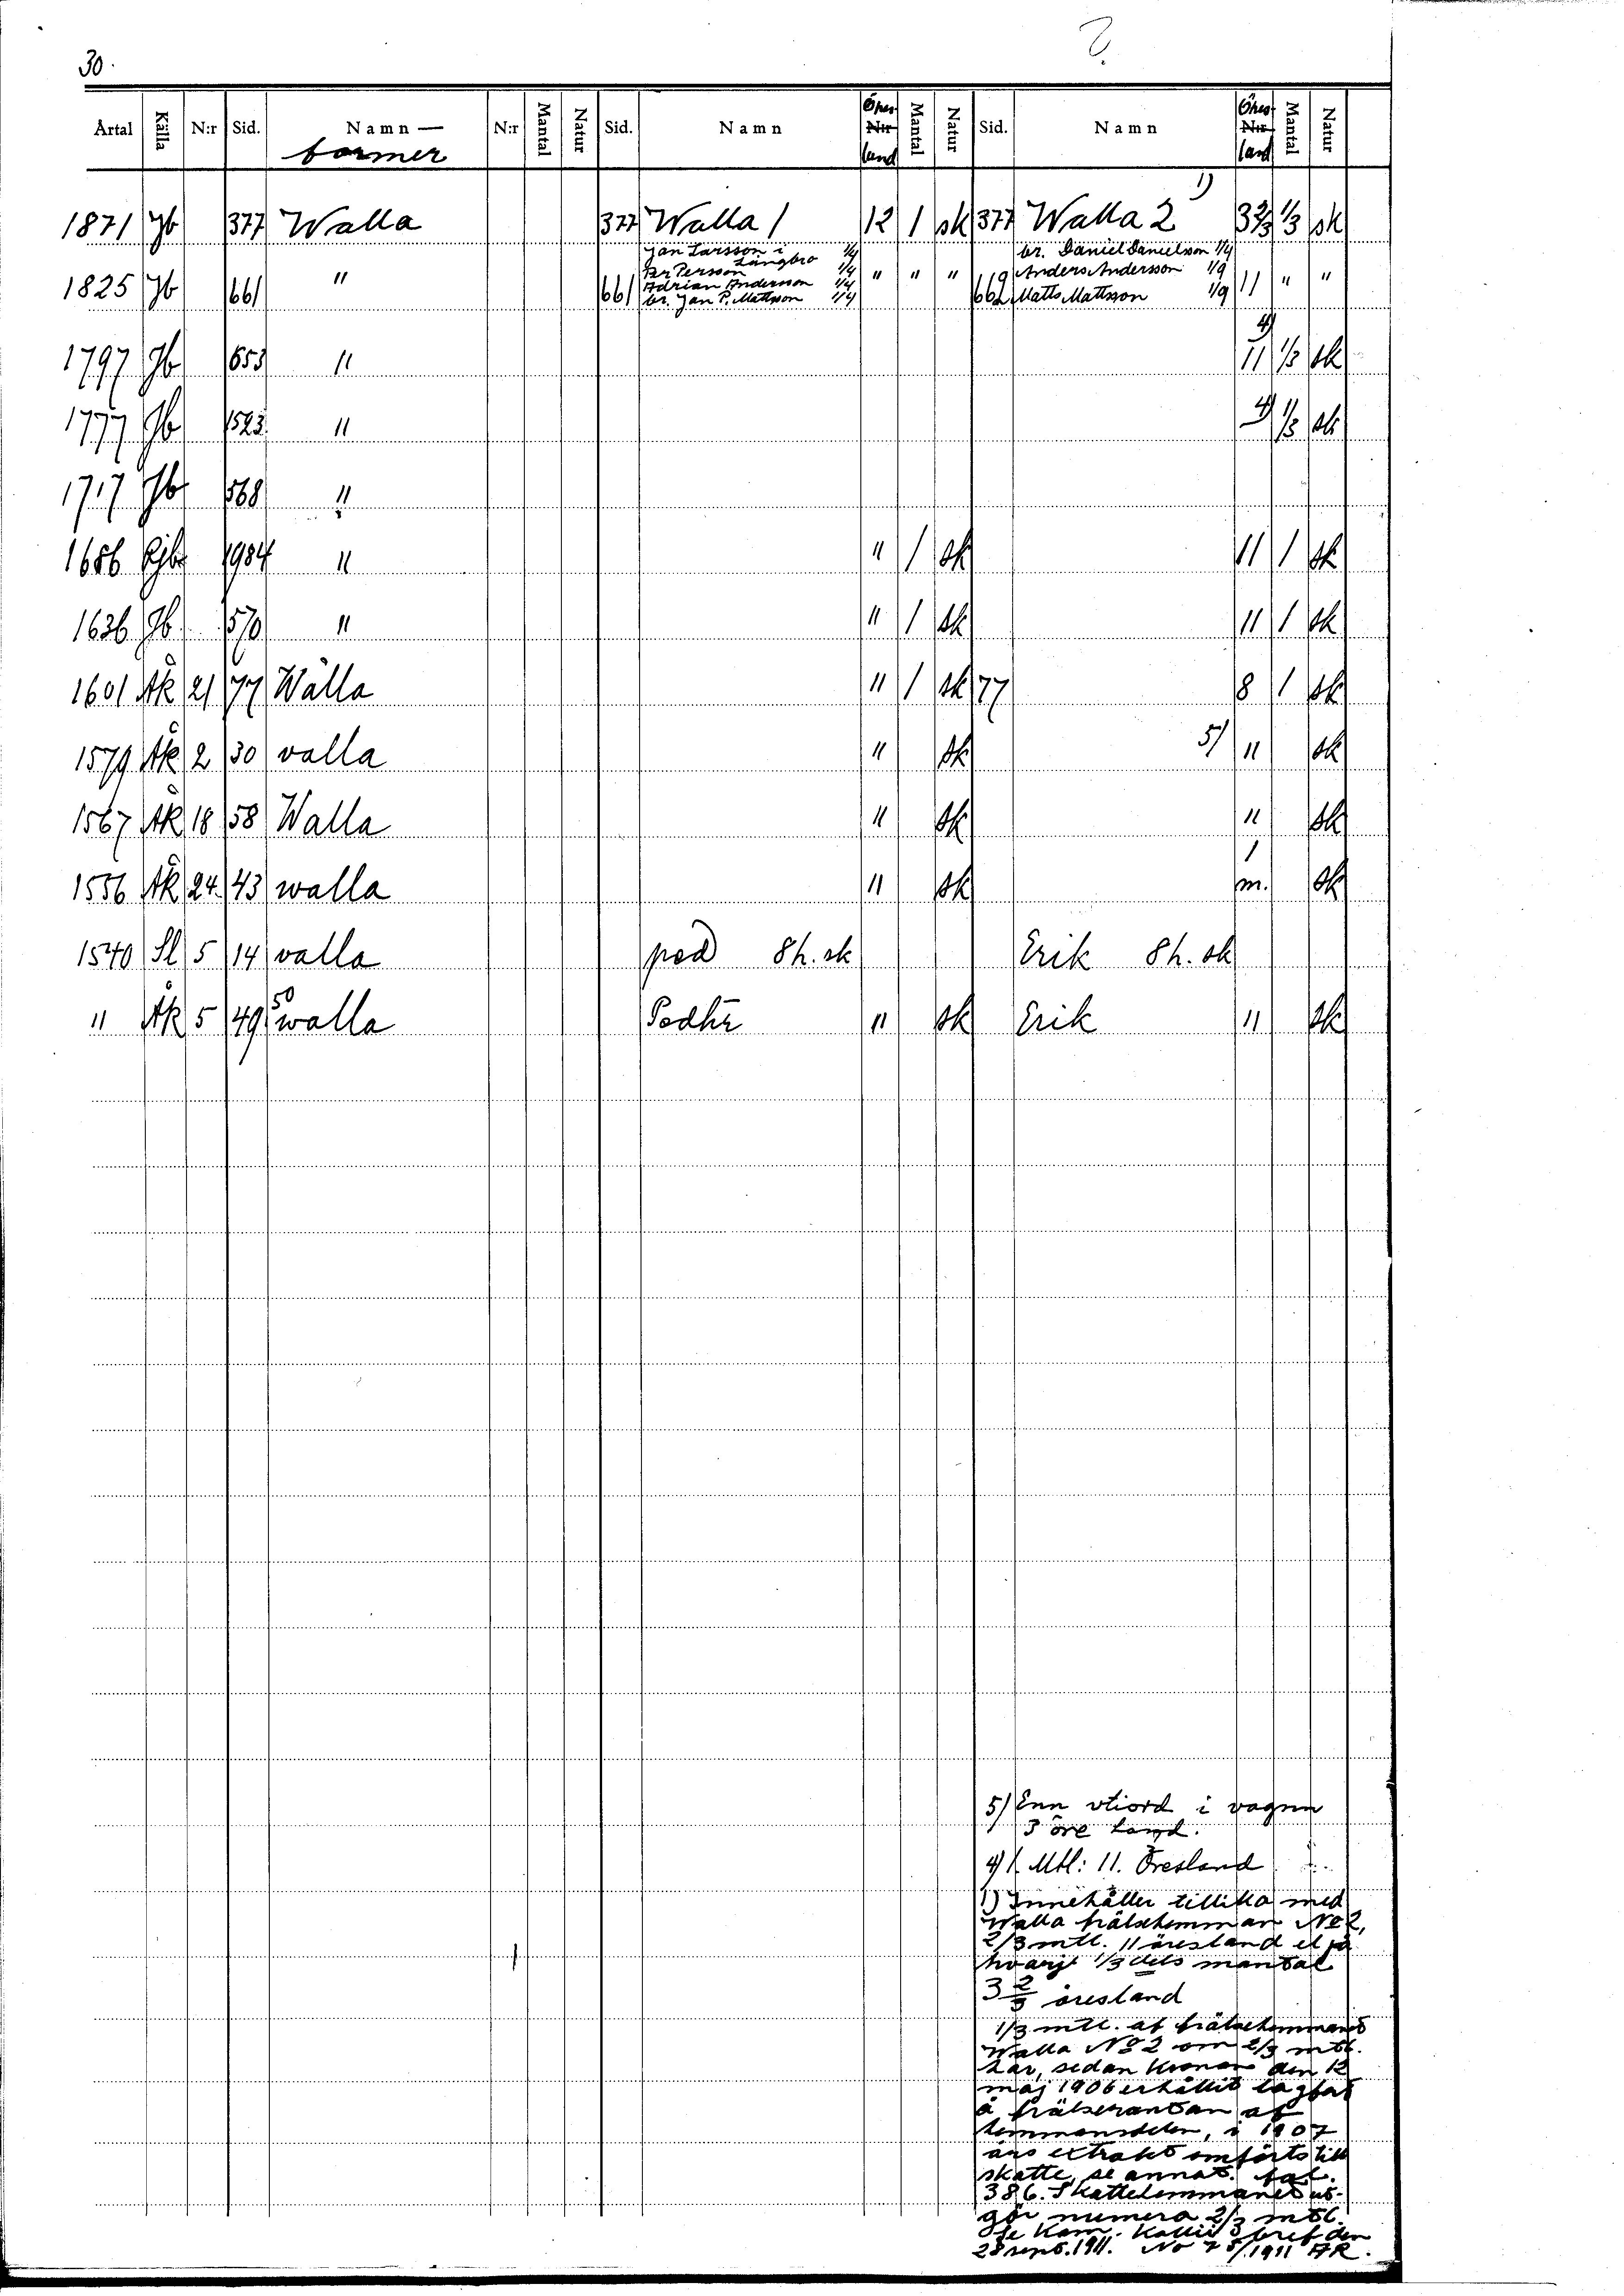 30.
Årtal Källa N:r Sid. Namn— N:r Mantal Natur Sid. Namn Öres- N:r land Mantal Natur Sid. Namn Öres- N:r land Mantal Natur
former
1871 Jb 377 Walla 377 Walla 1 12 1 sk 377 Walla 2 1) 3 2/3 1/3 sk
Jan Larsson i Långbro 1/4
Per Persson 1/4
Adrian Andersson 1/4
br. Jan P. Mattsson 1/4
br. Daniel Danielsson 1/9
Anders Andersson 1/9
Matts Mattsson 1/9
1825 Jb 661 " 661 " " " 662 11 " "
1797 Jb 653 " 4) 11 1/3 sk
1777 Jb 1523 " 4) 1/3 sk
1717 Jb 568 "
1686 1984 " " 1 sk 11 1 sk
1636 Jb 570 " " 1 sk 11 1 sk
1601 Åk 21 77 Wålla " 1 sk 77 8 1 sk
1579 Åk 2 30 valla " sk 5) 11 sk
1567 Åk 18 58 Walla " sk " sk
1556 Åk 24 43 walla " sk 1 m. sk
1540 Sl 5 14 valla ped 8 h. sk Erik 8 h. sk
" Åk 5 49 50 walla Pedhr " sk Erik " sk
5) Enn vtiord i vagnn
3 öre land.
4) 1. Mtl: 11. Öresland
1) Innehåller tillika med
Walla frälsehemman No 2,
2/3 mtl. 11 öresland el på
hvarje 1/3 dels mantal
3 2/3 öresland
1/3 mtl. af frälsehemmanet
Walla No 2 om 2/3 mtl.
har, sedan Kronan den 12
maj 1906 erhållit lagfart
å frälseräntan af
hemmansdelen, i 1907
års extrakt omförts till
skatte, se annot. fol.
386. Skattehemmanet ut-
gör numera 2/3 mtl.
Se Kam. Kollii bref den
28 sept. 1911. No 1911 AR.